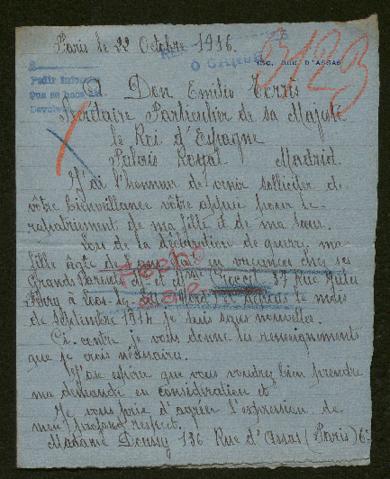 Paris le 22 Octobre 1916.
3123
136, RUE D'ASSAS
Pedir informes
Don Emilio Torrès
Secrétaire Particulier de sa Majesté
le Roi d'Espagne
Palais Royal Madrid
J'ai l'honneur de venir solliciter de
vôtre bienveillance vôtre appui pour le
rapatriement de ma fille et de ma sœur.
Lors de la déclaration de guerre, ma
fille âgée de ans était en vacances chez ses
Grands Parents Mr et Mme 37 Rue Jules
Ferry à Loos (Nord) et depuis le mois
de Septembre 1914 je suis sans nouvelles.
Ci-contre je vous donne les renseignements
que je crois nécessaires.
J'ose espérer que vous voudrez bien prendre
ma demande en considération et
Je vous prie d'agréer l'expression de
mon profond respect.
Madame Doussy 136 Rue d'Assas (Paris) 6e